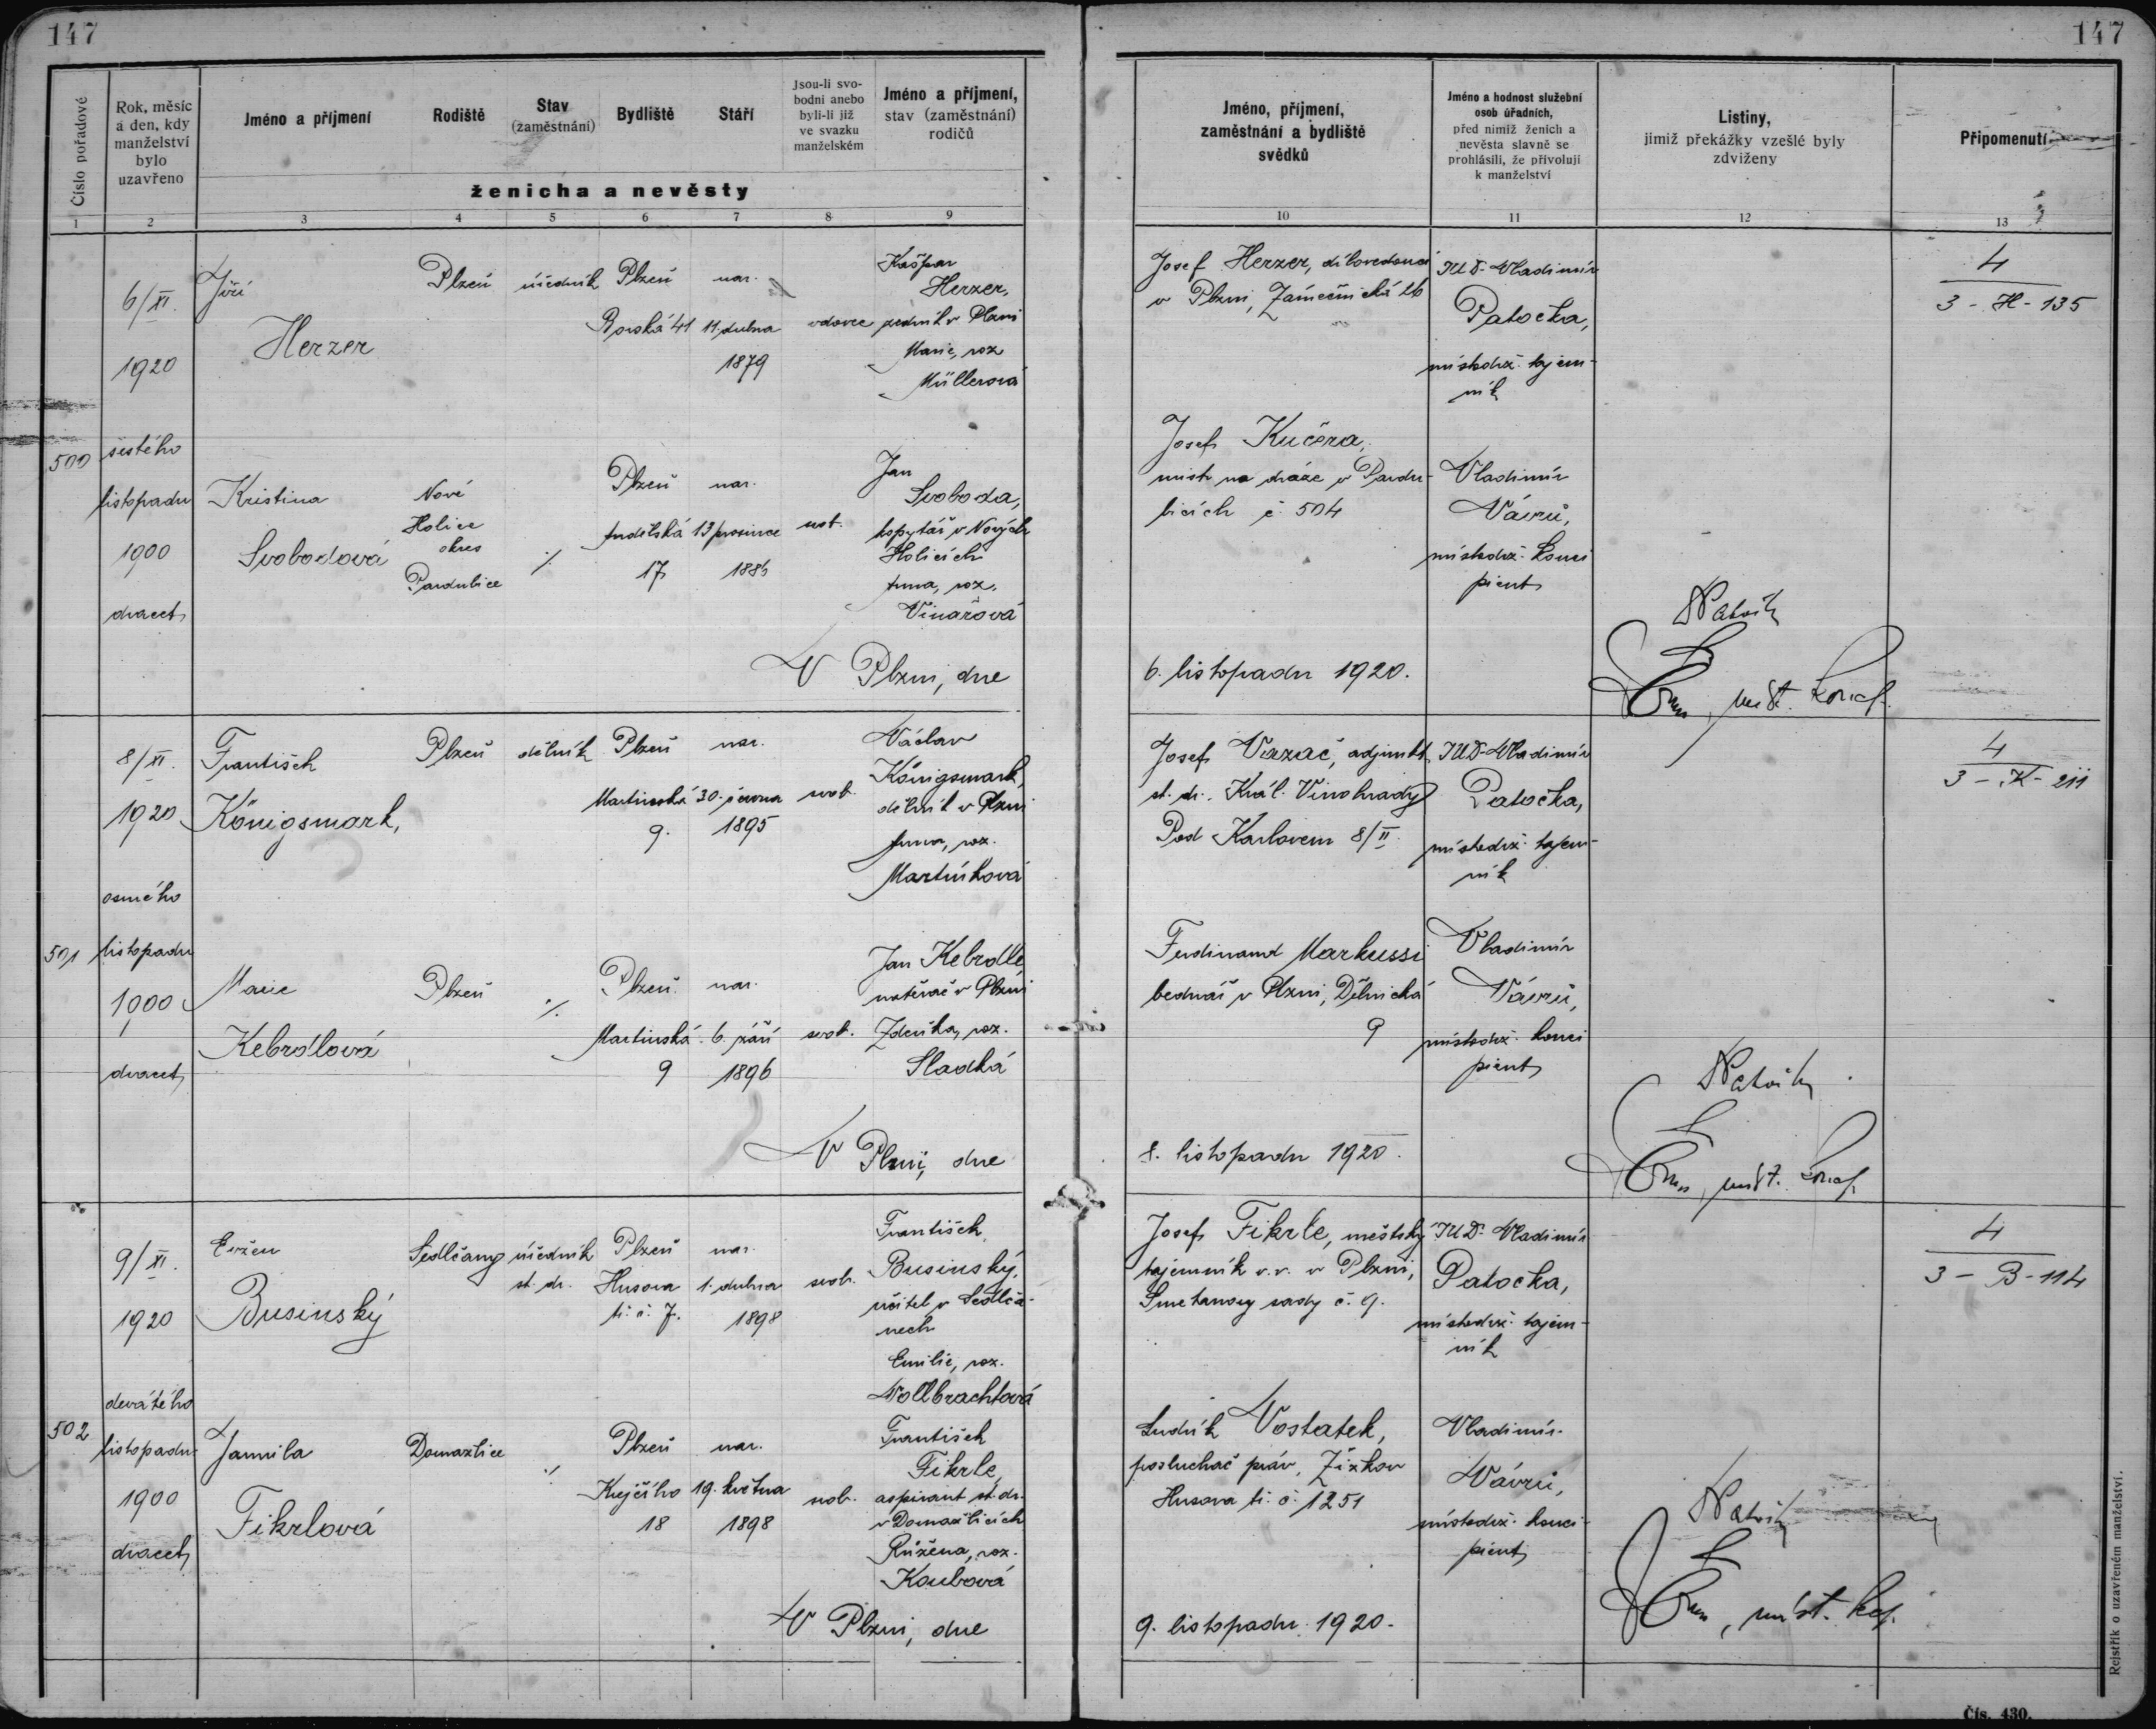 147
147
Číslo pořadové
Rok, měsíc
a den, kdy
manželství
bylo
uzavřeno
Jméno a příjmení
Rodiště
Stav
(zaměstnání)
Bydliště
Stáří
Jsou-li svo-
bodni anebo
byli-li již
ve svazku
manželském
Jméno a příjmení,
stav (zaměstnání)
rodičů
ženicha a nevěsty
Jméno, příjmení,
zaměstnání a bydliště
svědků
Jméno a hodnost služební
osob úřadních,
před nimiž ženich a
nevěsta slavně se
prohlásili, že přivolují
k manželství
Listiny,
jimiž překážky vzešlé byly
zdviženy
Připomenutí
1 2 3 4 5 6 7 8 9 10 11 12 13
500
6/XI.
1920
šestého
listopadu
1900
dvacet
Jiří
Herzer
Plzeň
úředník
Plzeň
Borská 41
nar.
11. dubna
1879
vdovec
Kašpar
Herzer,
v Plzni
Marie, roz.
Müllerová
Josef Herzer, dílovedoucí
v Plzni, Zámečnická 26
JUDr. Vladimír
Patočka,
místodrž. tajem-
ník
4
3 - H - 135
Kristina
Svobodová
Nové
Holice
okres
Pardubice
%
Plzeň
Andělská
17
nar.
13 prosince
1886
Jan
Svoboda,
kopytář v Nových
Holicích
Anna, roz.
Vinařová
Josef Kučera,
mistr na dráze v Pardu-
bicích č. 504
Vladimír
Vávrů,
místodrž. konci
pient
V Plzni, dne
6. listopadu 1920.
501
8/XI.
1920
osmého
listopadu
1900
dvacet
František
Königsmark,
Plzeň
dělník
Plzeň
Martinská
9.
nar.
30. června
1895
svob.
Václav
Königsmark,
dělník v Plzni
Anna, roz.
Martínková
Josef Vazač, adjunkt
st. dr. Král. Vinohrady
Pod Karlovem 8/II
JUDr. Vladimír
Patočka,
místodrž. tajem-
ník
4
3 - K - 211
Marie
Kebrdlová
Plzeň
%
Plzeň
Martinská
9
nar.
6. září
1896
svob.
Jan Kebrdle
natěrač v Plzni
Zdeňka, roz.
Sladká
Ferdinand Markussi
bednář v Plzni, Dělnická
9
Vladimír
Vávrů,
místodrž. konci
pient
V Plzni, dne
8. listopadu 1920.
502
9/XI.
1920
devátého
listopadu
1900
dvacet
Evžen
Businský
Sedlčany
úředník
st. dr.
Plzeň
Husova
tř. č. 7.
nar.
1. dubna
1898
svob.
František
Businský,
učitel v Sedlča-
nech
Emilie, roz.
Wollbrachtová
Josef Fikrle, městský
tajemník v. v. v Plzni,
Smetanovy sady č. 9.
JUDr. Vladimír
Patočka,
místodrž. tajem-
ník
4
3 - B - 114
Jarmila
Fikrlová
Domažlice
%
Plzeň
Krejčího
18
nar.
19. května
1898
svob.
František
Fikrle,
aspirant st. dr.
v Domažlicích
Růžena, roz.
Koubová
Ludvík Vostatek,
posluchač práv, Žižkov
Husova tř. č. 1251
Vladimír
Vávrů,
místodrž. konci-
pient
V Plzni, dne
9. listopadu 1920.
Rejstřík o uzavřeném manželství.
Čís. 430.